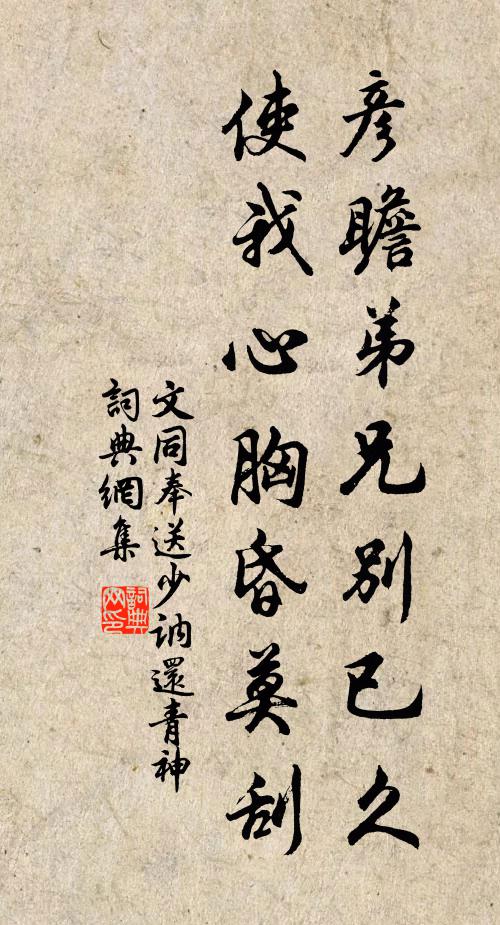 彥瞻弟兄別已久
使我心胸昏莫刮
文同奉送少訥還青神
詞典網集
詞典網印